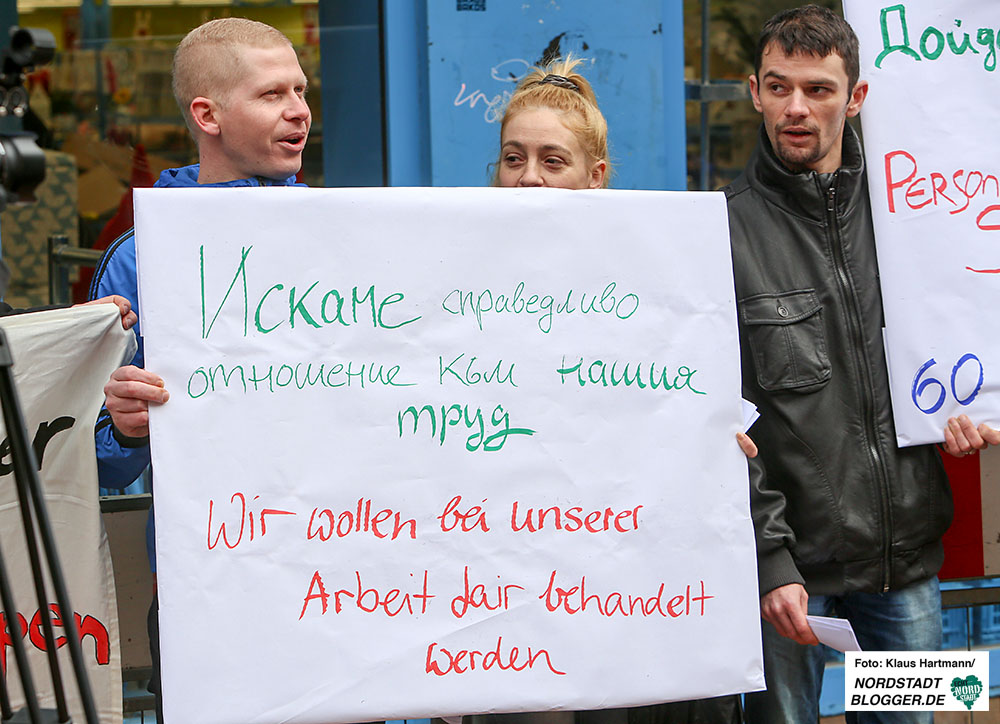 Искаме справедливо
отношение към нашия
труд
Wir wollen bei unserer
Arbeit fair behandelt
werden
60
Foto: Klaus Hartmann/
NORDSTADT
BLOGGER.DE